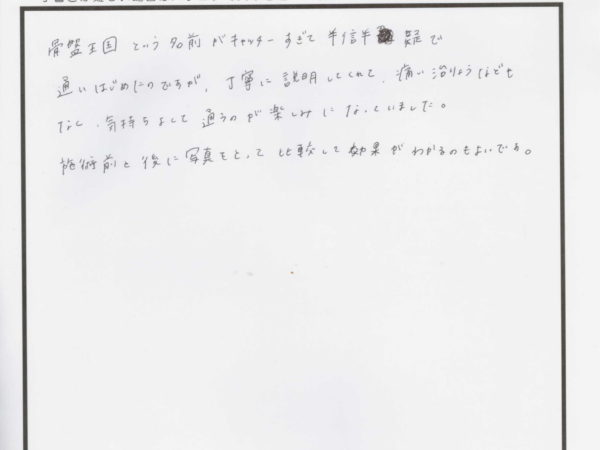 骨盤王国 という名前がキャッチーすぎて 半信半疑で
通いはじめたのですが、丁寧に説明してくれて、痛い治りょうなども
なく、気持ちよくて 通うのが楽しみになっていました。
施術前と後に写真をとって 比較して効果がわかるのもよいです。